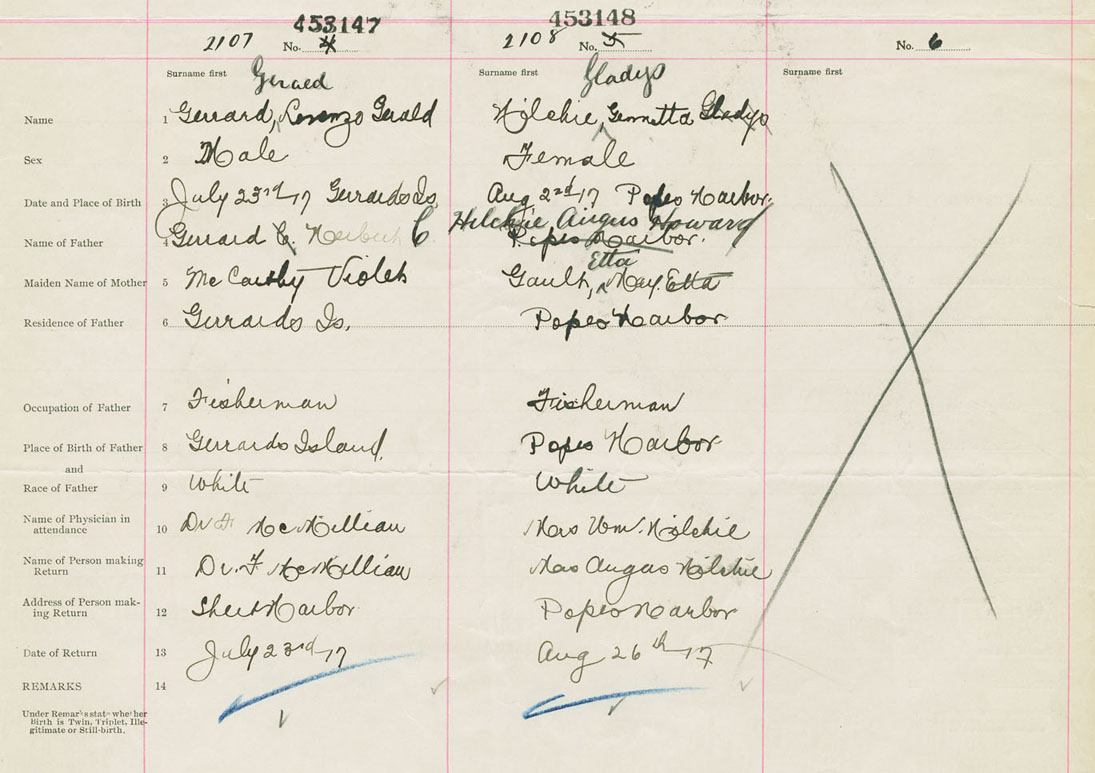 453147 453148
2107 No. 4 2108 No. 5 No. 6
Surname first Gerald Surname first Gladys Surname first
Name 1 Gerrard, Lorenzo Gerald Hilchie, Gennetta Gladys
Sex 2 Male Female
Date and Place of Birth 3 July 23rd 17 Gerrards Is. Aug 2nd 17 Popes Harbor.
Hilchie Angus Howard
Name of Father 4 Gerrard C. Herbert C Popes Harbor.
Etta
Maiden Name of Mother 5 McCarthy Violet Gault, May. Etta
Residence of Father 6 Gerrards Is. Popes Harbor
Occupation of Father 7 Fisherman Fisherman
Place of Birth of Father 8 Gerrards Island. Popes Harbor
and
Race of Father 9 White White
Name of Physician in
attendance 10 Dr F McMillian Mrs Wm. Hilchie
Name of Person making
Return 11 Dr. F McMillian Mrs Angus Hilchie
Address of Person mak-
ing Return 12 Sheet Harbor Popes Harbor
Date of Return 13 July 23rd 17 Aug 26th 17
REMARKS 14
Under Remarks state whether
Birth is Twin, Triplet, Ille-
gitimate or Still-birth.